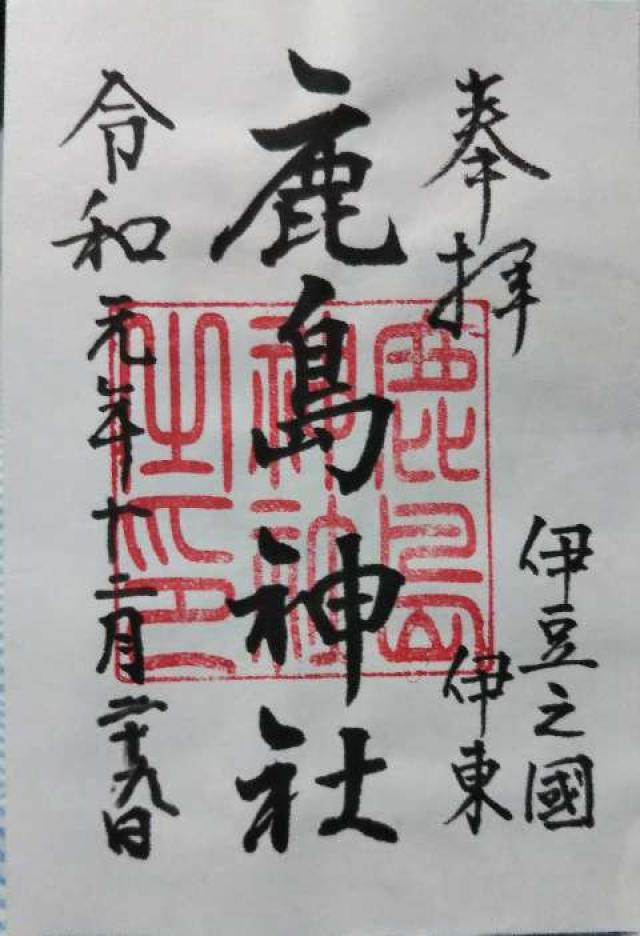 奉拝
伊豆之國
伊東
鹿島神社
鹿島神社之印
令和元年十二月二十九日